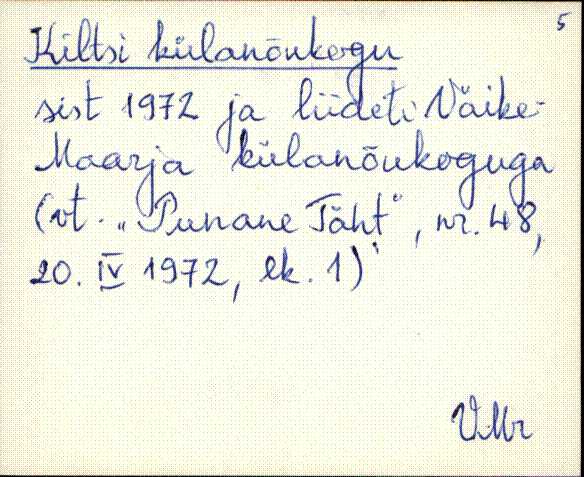 5
Kiltsi külanõukogu
sist 1972 ja liideti Väike-
Maarja külanõukoguga
(vt. „Punane Täht", nr. 48,
20. IV 1972, lk. 1)
VMr